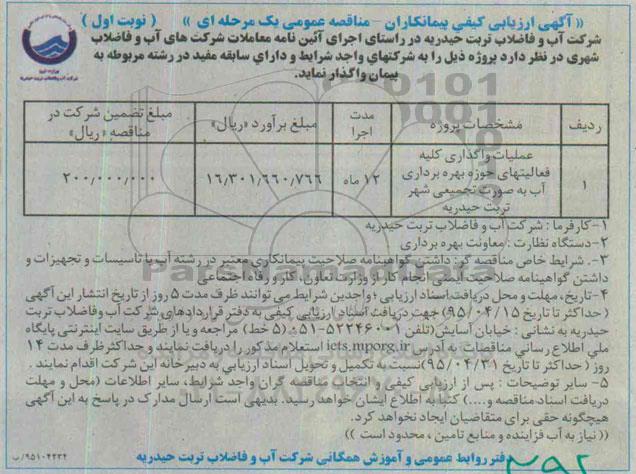 « آگهی ارزیابی کیفی پیمانکاران - مناقصه عمومی یک مرحله ای » ( نوبت اول )
شرکت آب و فاضلاب تربت حیدریه در راستای اجرای آئین نامه معاملات شرکت های آب و فاضلاب
شهری در نظر دارد پروژه ذیل را به شرکتهای واجد شرایط و دارای سابقه مفید در رشته مربوطه به
پیمان واگذار نماید.
ردیف مشخصات پروژه مدت اجرا مبلغ برآورد «ریال» مبلغ تضمین شرکت در مناقصه «ریال»
۱ عملیات واگذاری کلیه فعالیتهای حوزه بهره برداری آب به صورت تجمیعی شهر تربت حیدریه ۱۲ ماه ۱۶/۳۰۱/۶۶۰/۷۶۶ ۲۰۰/۰۰۰/۰۰۰
۱-کارفرما : شرکت آب و فاضلاب تربت حیدریه
۲-دستگاه نظارت : معاونت بهره برداری
۳-. شرایط خاص مناقصه گر: داشتن گواهینامه صلاحیت پیمانکاری معتبر در رشته آب یا تاسیسات و تجهیزات و
داشتن گواهینامه صلاحیت ایمنی انجام کار از وزارت تعاون، کار و رفاه اجتماعی
۴-تاریخ، مهلت و محل دریافت اسناد ارزیابی : واجدین شرایط می توانند ظرف مدت ۵ روز از تاریخ انتشار این آگهی
( حداکثر تا تاریخ ۹۵/۰۴/۱۵) جهت دریافت اسناد ارزیابی کیفی به دفتر قراردادهای شرکت آب وفاضلاب تربت
حیدریه به نشانی : خیابان آسایش(تلفن ۵۲۲۴۶۰۰۱-۰۵۱ (۵ خط) مراجعه و یا از طریق سایت اینترنتی پایگاه
ملی اطلاع رسانی مناقصات به آدرس iets.mporg.ir استعلام مذکور را دریافت نمایند و حداکثر ظرف مدت ۱۴
روز ( حداکثر تا تاریخ ۹۵/۰۴/۳۱)نسبت به تکمیل و تحویل اسناد ارزیابی به دبیرخانه این شرکت اقدام نمایند .
۵- سایر توضیحات : پس از ارزیابی کیفی و انتخاب مناقصه گران واجد شرایط، سایر اطلاعات (محل و مهلت
دریافت اسناد مناقصه و....) کتبا به اطلاع ایشان خواهد رسید. بدیهی است ارسال مدارک در پاسخ به این آگهی
هیچگونه حقی برای متقاضیان ایجاد نخواهد کرد.
(( نیاز به آب فزاینده و منابع تامین ، محدود است ))
دفتر روابط عمومی و آموزش همگانی شرکت آب و فاضلاب تربت حیدریه
۹۵۱۰۴۲۳۴/ب
۲۹۲